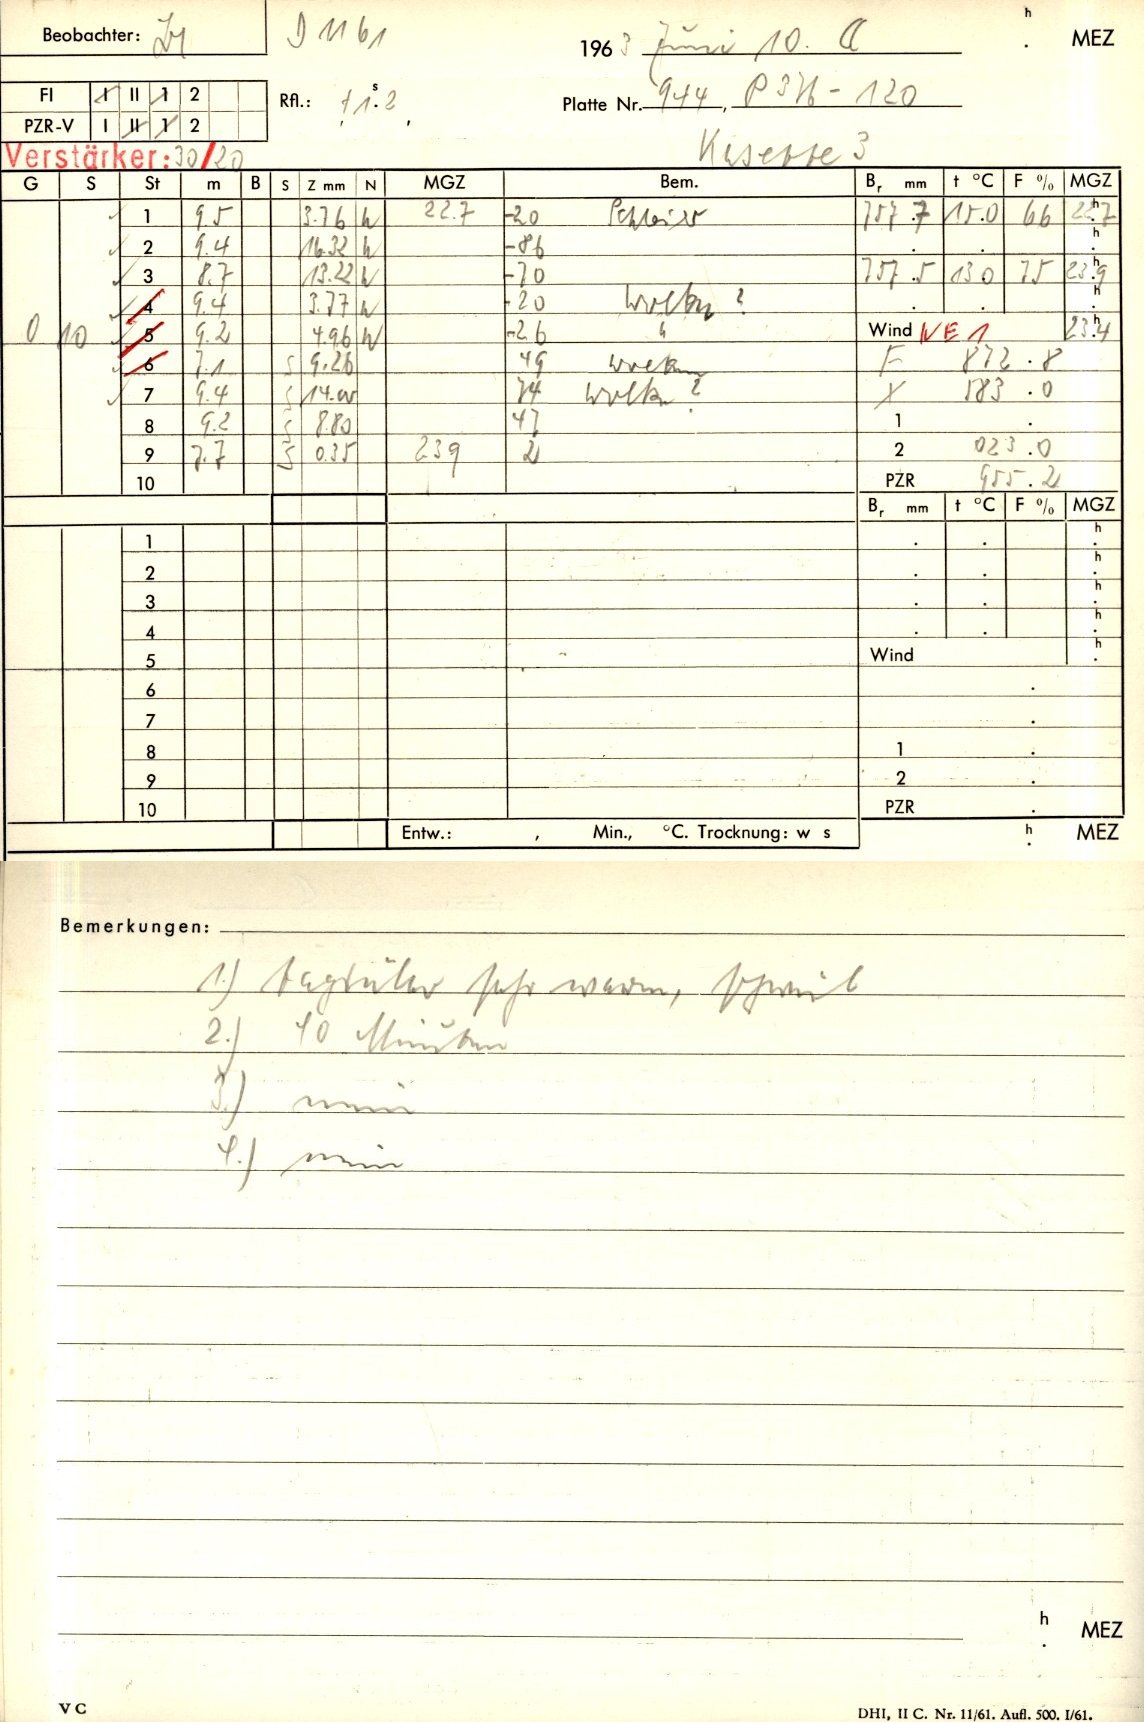 Beobachter: D 1161 1963 Juni 10. a h . MEZ
FI I II 1 2 Rfl.: +1.2 s Platte Nr. 944, P 376 - 120
PZR-V I II 1 2
Verstärker: 30/20 Kasette 3
G S St m B S Z mm N MGZ Bem. Br mm t °C F % MGZ
1 9.5 3.76 W 22.7 -20 Schleier 757.7 15.0 66 22.7 h
2 9.4 16.32 W -86 . . h .
3 8.7 13.22 W -70 757.5 13.0 75 23.9 h
4 9.4 3.77 W -20 Wolken ? . . h .
0 10 5 9.2 4.96 W -26 " Wind NE 1 23.4 h
6 7.1 S 9.26 49 Wolken F 872.8
7 9.4 S 14.00 74 Wolken ? X 583.0
8 9.2 S 8.80 47 1 .
9 7.7 S 0.35 23.9 2 2 023.0
10 PZR 955.2
Br mm t °C F % MGZ
1 . . h .
2 . . h .
3 . . h .
4 . . h .
5 Wind h .
6 .
7 .
8 1 .
9 2 .
10 PZR .
Entw.: , Min., °C. Trocknung: w s h . MEZ
Bemerkungen:
1.) tagsüber sehr warm, schwül
2.) 40 Minuten
3.) nein
4.) nein
h . MEZ
V C DHI, II C. Nr. 11/61. Aufl. 500. I/61.